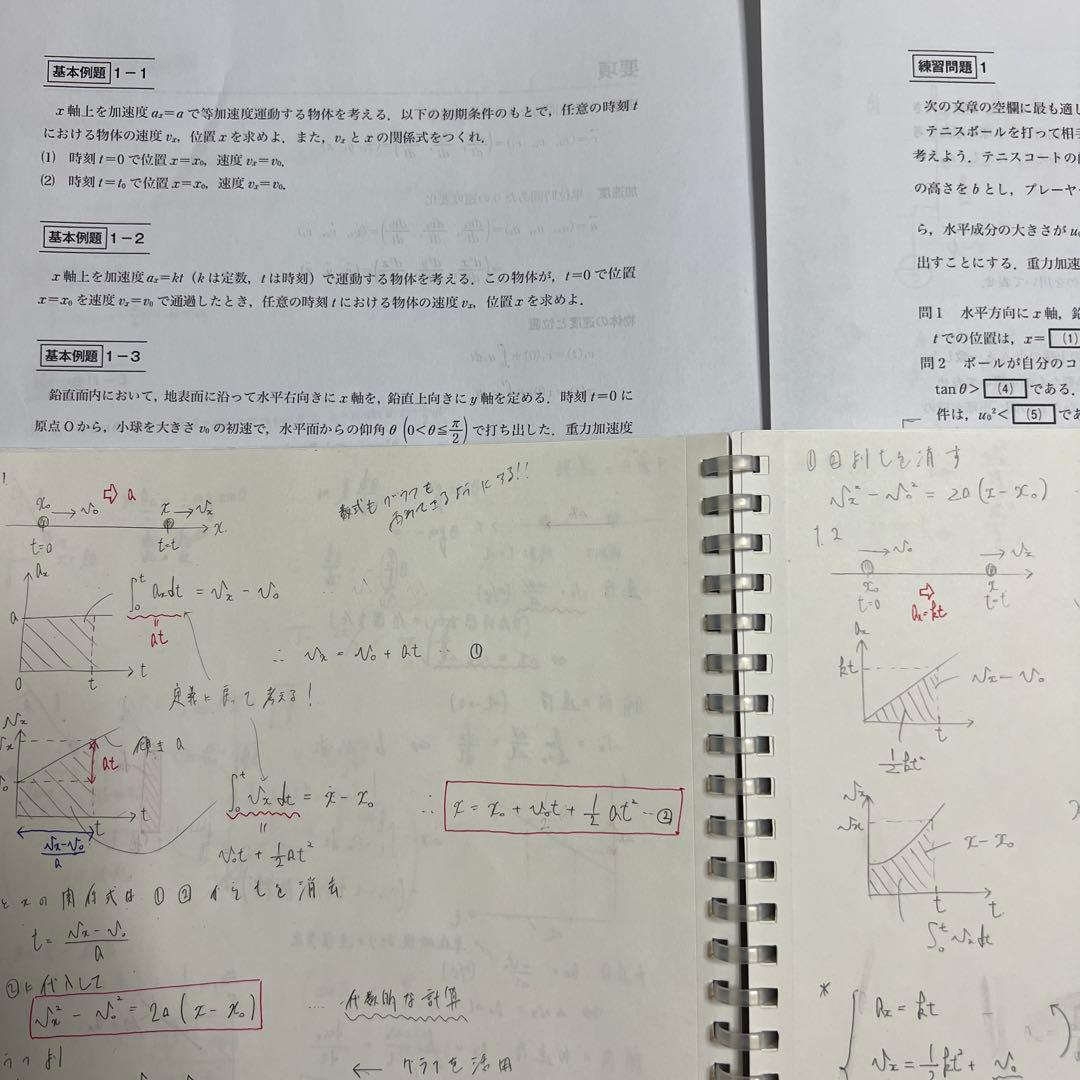 基本例題 1－1
x軸上を加速度 aₓ=a で等加速度運動する物体を考える．以下の初期条件のもとで，任意の時刻 t
における物体の速度 vₓ，位置 x を求めよ．また，vₓ と x の関係式をつくれ．
(1) 時刻 t=0 で位置 x=x₀，速度 vₓ=v₀.
(2) 時刻 t=t₀ で位置 x=x₀，速度 vₓ=v₀.
基本例題 1－2
x軸上を加速度 aₓ=kt（k は定数，t は時刻）で運動する物体を考える．この物体が，t=0 で位置
x=x₀ を速度 vₓ=v₀ で通過したとき，任意の時刻 t における物体の速度 vₓ，位置 x を求めよ．
基本例題 1－3
鉛直面内において，地表面に沿って水平右向きに x 軸を，鉛直上向きに y 軸を定める．時刻 t=0 に
原点 O から，小球を大きさ v₀ の初速で，水平面からの仰角 θ (0<θ≦π/2) で打ち出した．重力加速度
練習問題 1
次の文章の空欄に最も適し
テニスボールを打って相手
考えよう．テニスコートの
の高さを b とし，プレーヤー
ら，水平成分の大きさが u₀
出すことにする．重力加速
問1 水平方向に x 軸，鉛
t での位置は，x= (1)
問2 ボールが自分のコ
tan θ> (4) である．
件は，u₀²< (5) であ
x₀ → v₀ ⇨ a x → vₓ
x
t=0 t=t
数式もグラフも
ようにする!!
aₓ
a
0 t t
∫₀ᵗ aₓdt = vₓ − v₀
at
∴ vₓ = v₀ + at … ①
定義に戻って考える！
vₓ
vₓ
v₀
傾き a
at
t t
(vₓ−v₀)/a
∫₀ᵗ vₓdt = x − x₀
v₀t + ½at²
∴ x = x₀ + v₀t + ½at² … ②
xの関係式は ①②から t を消去
t = (vₓ − v₀)/a
②に代入して
vₓ² − v₀² = 2a(x − x₀)
… 代数的な計算
← グラフを活用
①②より t を消す
vₓ² − v₀² = 2a(x − x₀)
1.2
→ v₀ → vₓ
x₀ x
t=0 t=t
⇨
aₓ=kt
aₓ
kt
t
vₓ − v₀
½kt²
vₓ
vₓ
x − x₀
t t
∫₀ᵗ vₓdt
*
aₓ = kt
vₓ = ½kt² + v₀